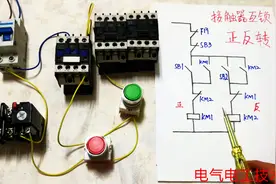 接触器互锁
正反转
FR
SB3
SB1
KM1
SB2
KM2
KM2
KM1
正
反
KM1
KM2